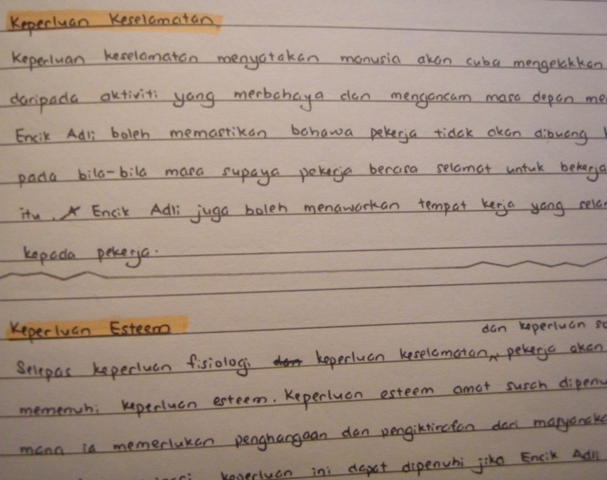 Keperluan Keselamatan
Keperluan keselamatan menyatakan manusia akan cuba mengelakkan
daripada aktiviti yang merbahaya dan mengancam masa depan
Encik Adli boleh memastikan bahawa pekerja tidak akan dibuang
pada bila-bila masa supaya pekerja berasa selamat untuk bekerja
itu. Encik Adli juga boleh menawarkan tempat kerja yang
kepada pekerja.
Keperluan Esteem
dan keperluan
Selepas keperluan fisiologi dan keperluan keselamatan, pekerja akan
memenuhi keperluan esteem. Keperluan esteem amat susah
mana ia memerlukan penghargaan dan pengiktirafan dari
keperluan ini dapat dipenuhi jika Encik Adli